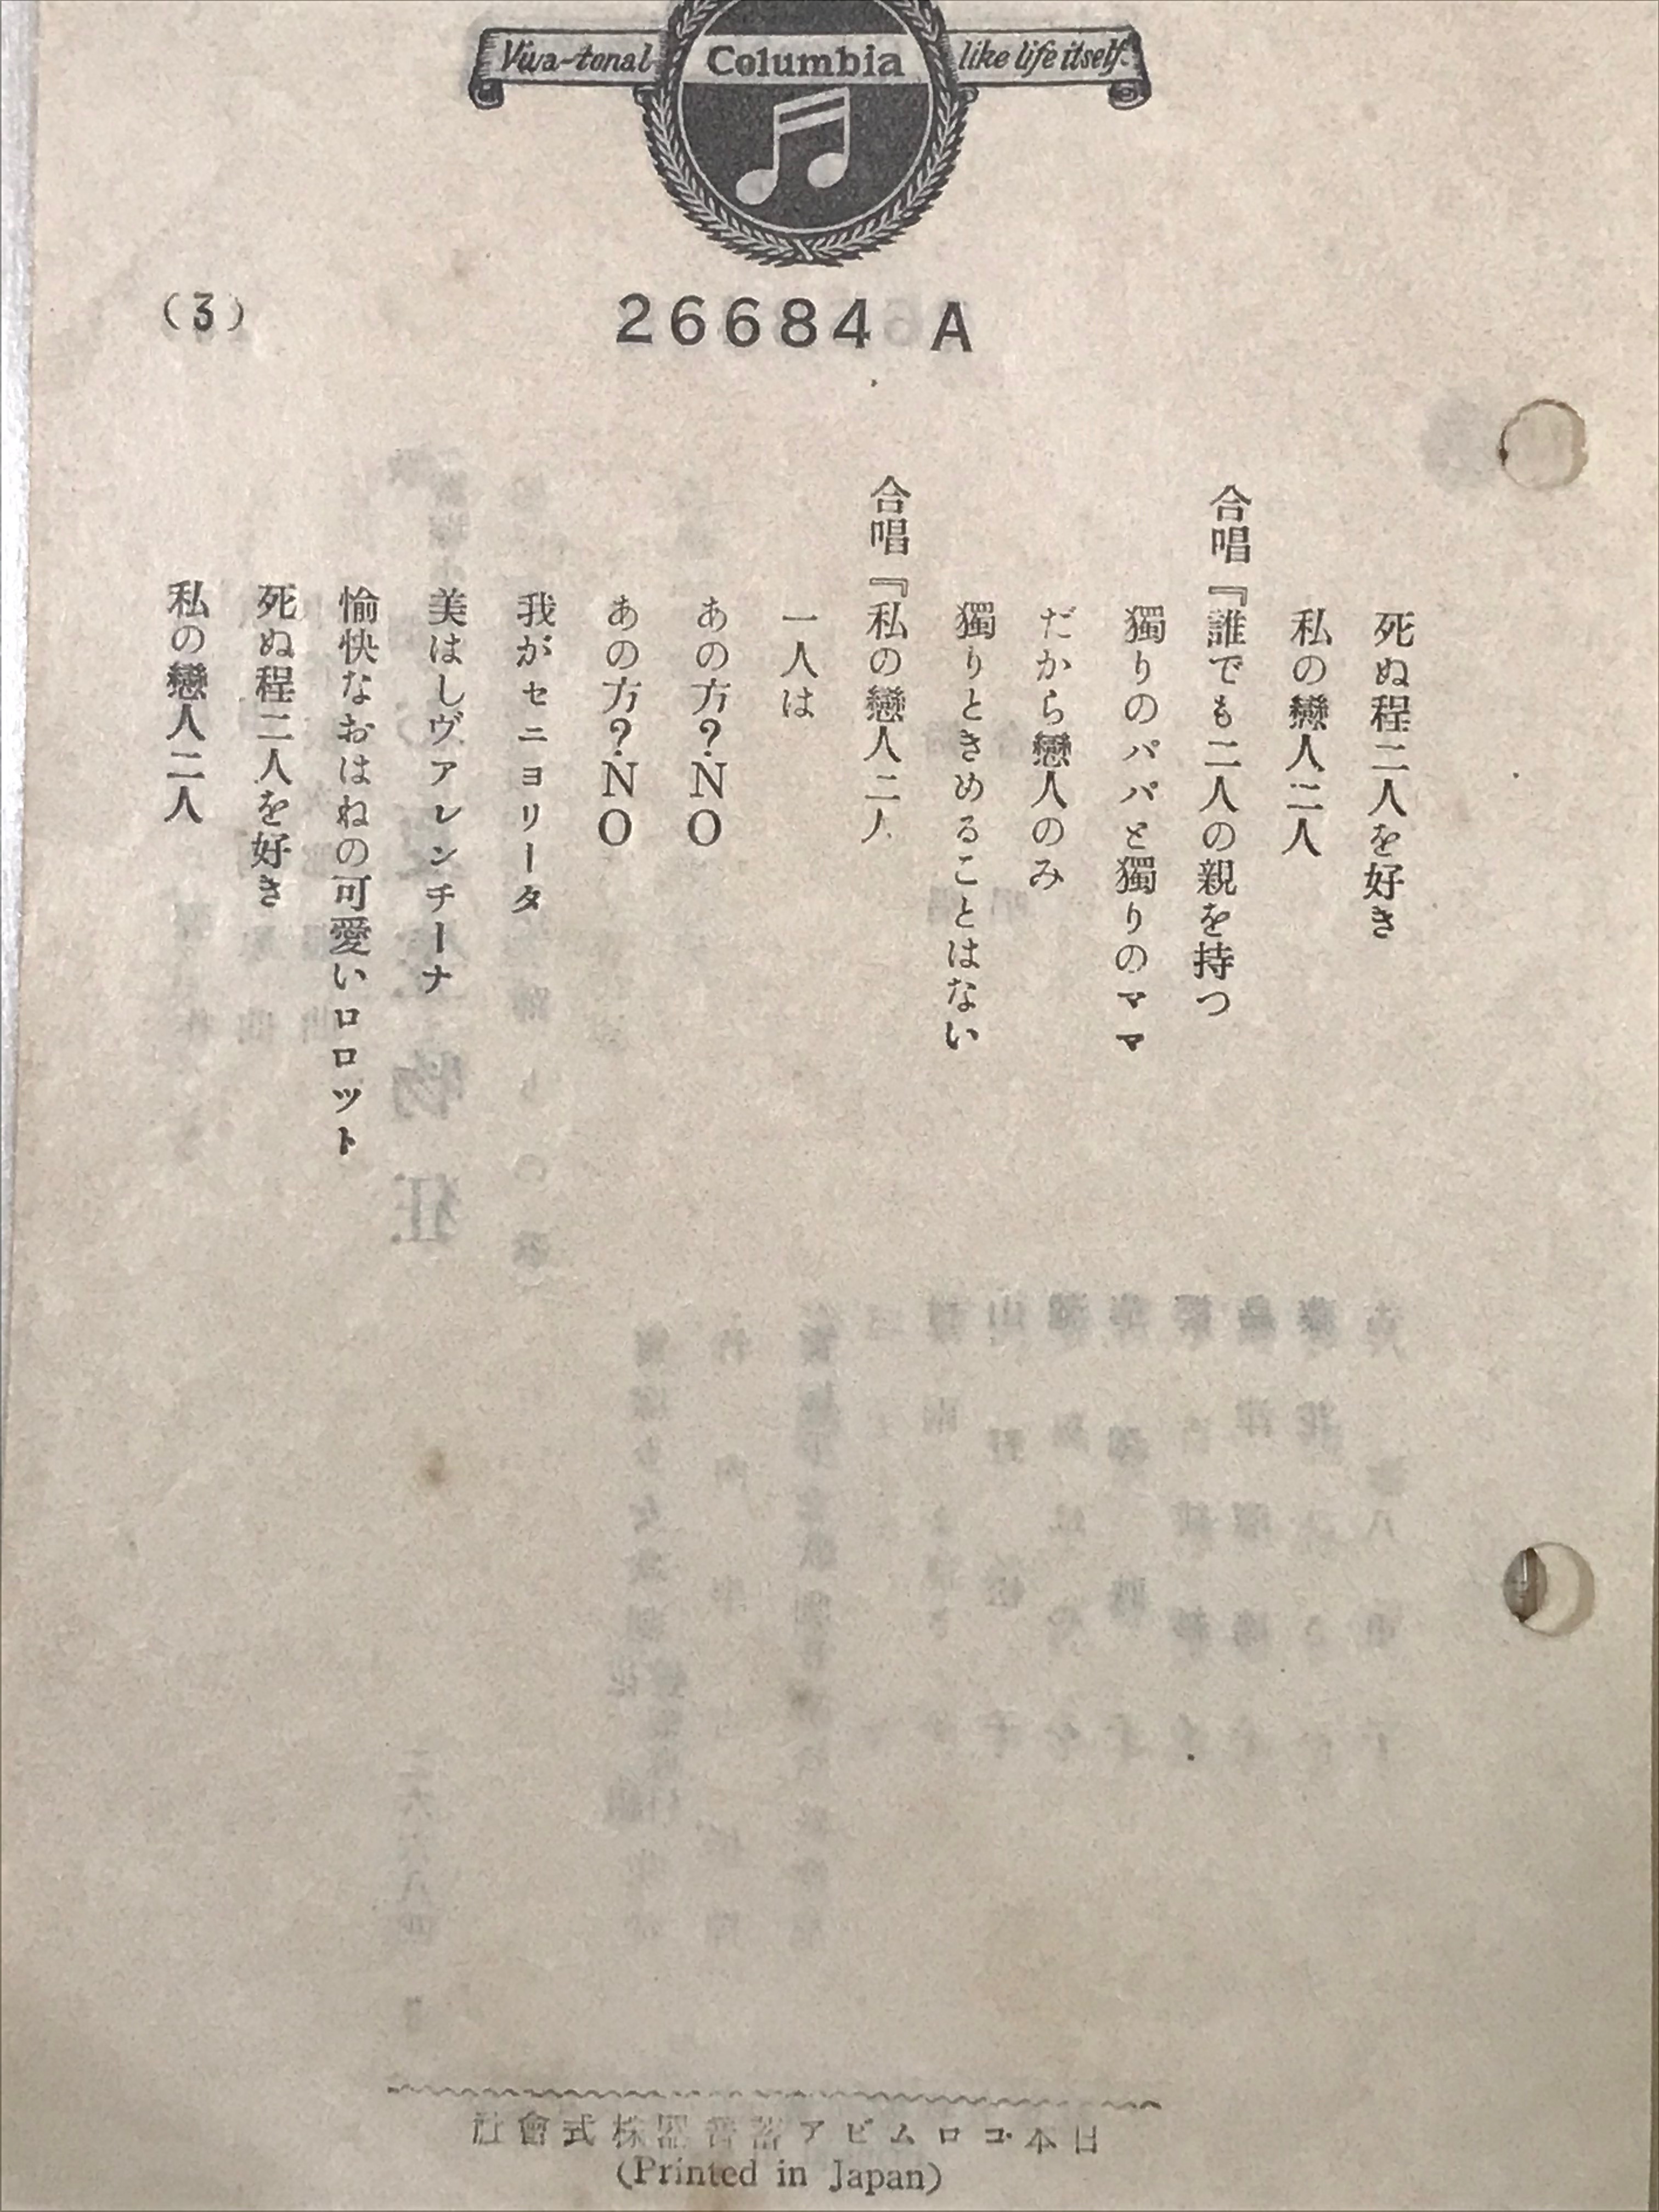 Viva-tonal Columbia like life itself.
(3)
26684 A
死ぬ程二人を好き
私の戀人二人
合唱『誰でも二人の親を持つ
獨りのパパと獨りのママ
だから戀人のみ
獨りときめることはない
合唱『私の戀人二人
一人は
あの方?NO
あの方?NO
我がセニヨリータ
美はしヴアレンチーナ
愉快なおはねの可愛いロロツト
死ぬ程二人を好き
私の戀人二人
社會式株器音蓄アビムロコ本日
(Printed in Japan)